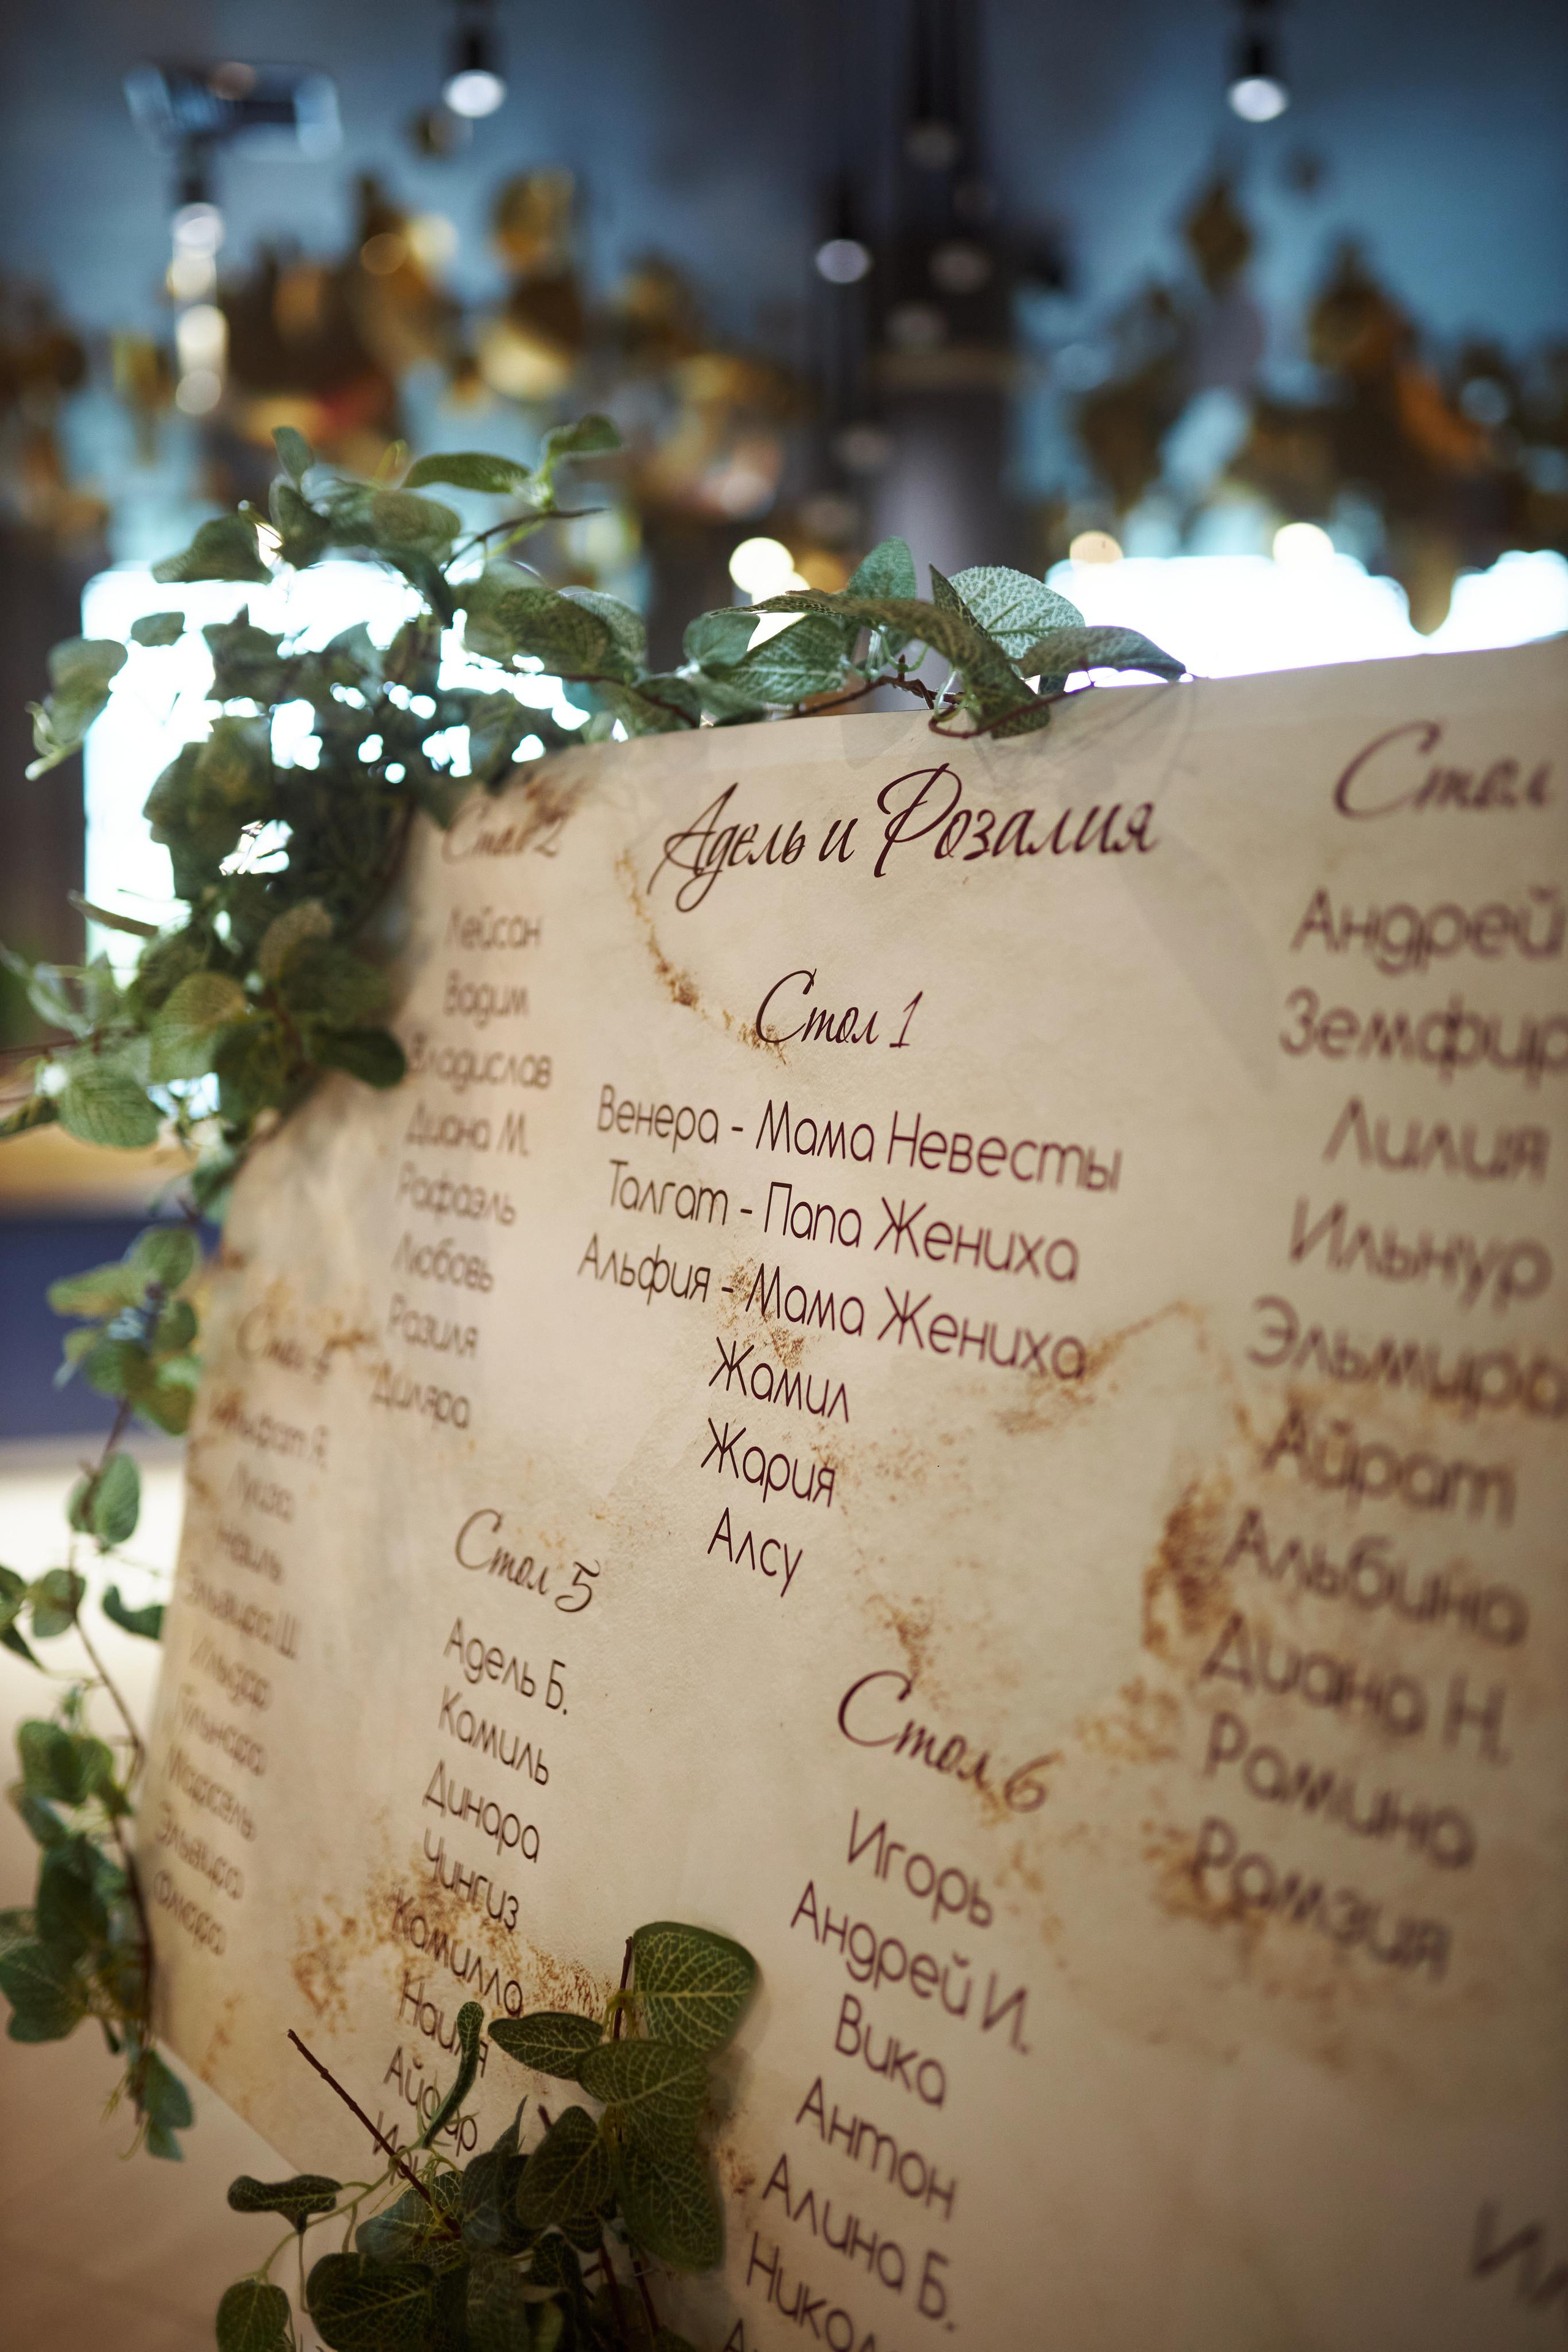 Адель и Розалия
Стол 1
Венера - Мама Невесты
Талгат - Папа Жениха
Альфия - Мама Жениха
Жамил
Жария
Алсу
Стол 2
Лейсан
Вадим
Владислав
Диана М.
Рафаэль
Любовь
Разиля
Диляра
Стол
Андрей
Земфир
Лилия
Ильнур
Эльмира
Айрат
Альбина
Диана Н.
Рамина
Рамзия
Стол
Луиза
Наиль
Эльвира Ш.
Гульнара
Марсель
Эльвира
Стол 5
Адель Б.
Камиль
Динара
Чингиз
Камилла
Наиля
Стол 6
Игорь
Андрей И.
Вика
Антон
Алина Б.
Никол